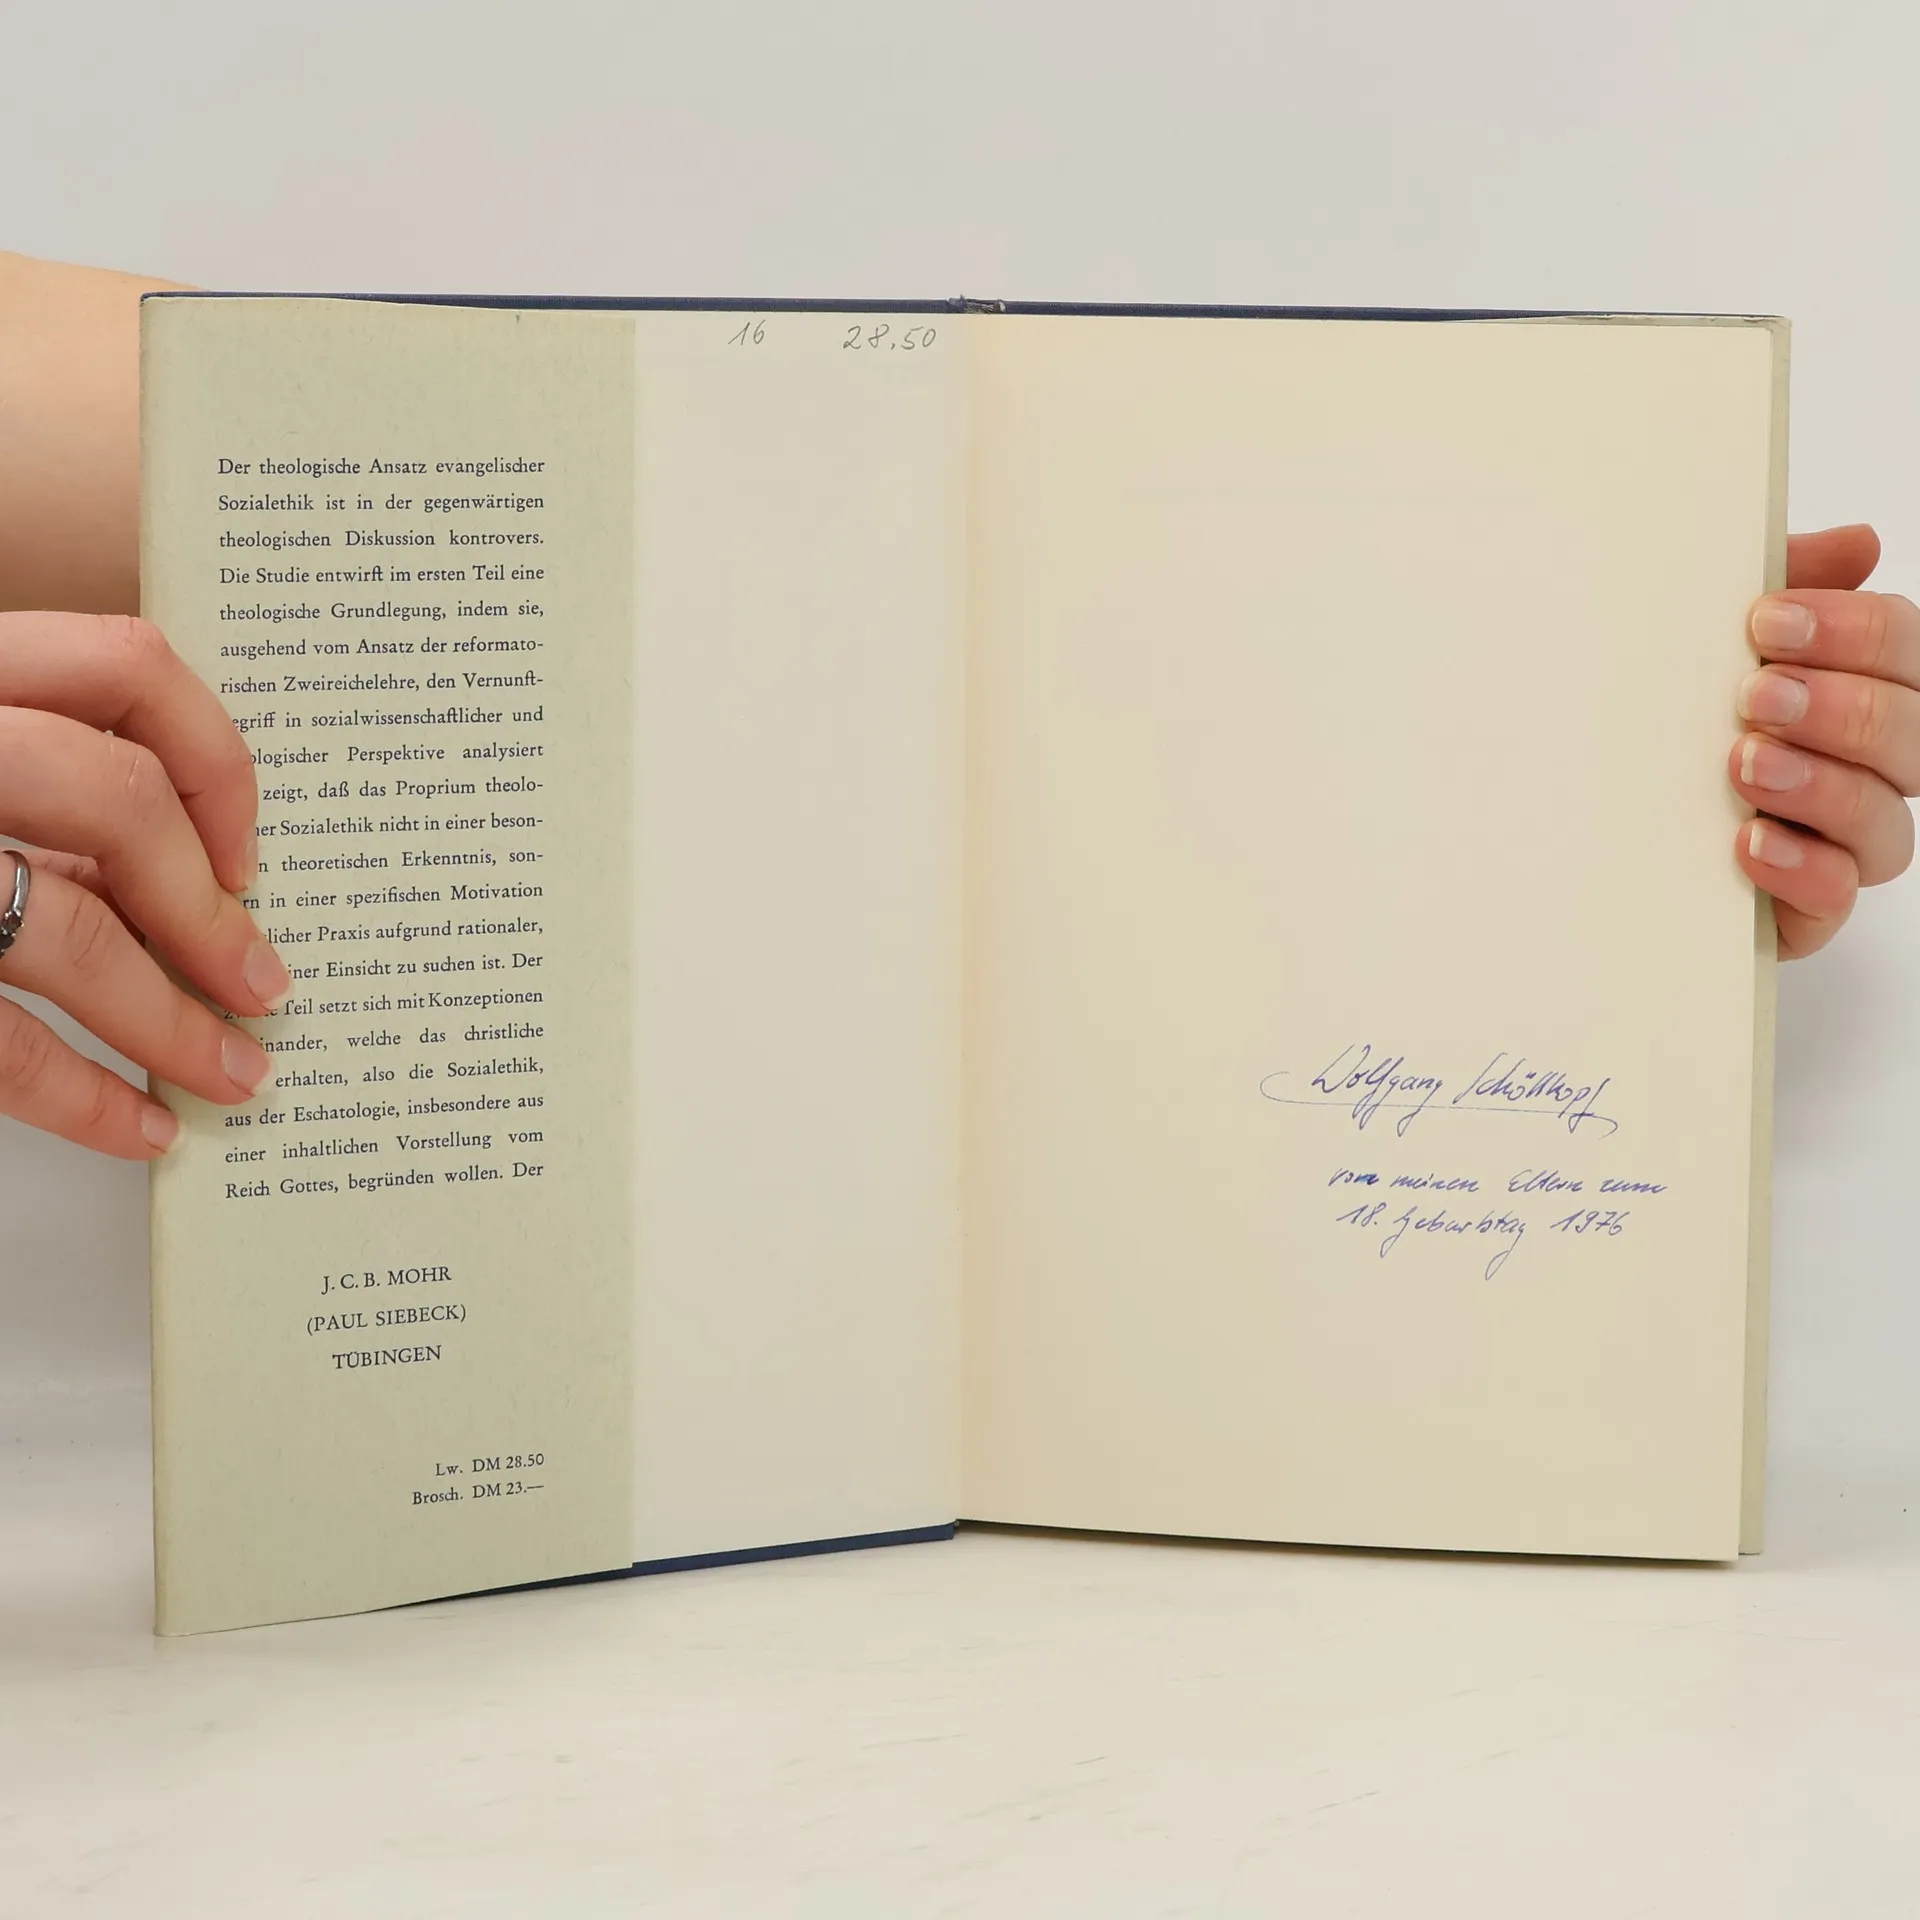 16 28.50
Der theologische Ansatz evangelischer
Sozialethik ist in der gegenwärtigen
theologischen Diskussion kontrovers.
Die Studie entwirft im ersten Teil eine
theologische Grundlegung, indem sie,
ausgehend vom Ansatz der reformato-
rischen Zweireichelehre, den Vernunft-
egriff in sozialwissenschaftlicher und
ologischer Perspektive analysiert
zeigt, daß das Proprium theolo-
her Sozialethik nicht in einer beson-
n theoretischen Erkenntnis, son-
rn in einer spezifischen Motivation
licher Praxis aufgrund rationaler,
iner Einsicht zu suchen ist. Der
Teil setzt sich mit Konzeptionen
inander, welche das christliche
erhalten, also die Sozialethik,
aus der Eschatologie, insbesondere aus
einer inhaltlichen Vorstellung vom
Reich Gottes, begründen wollen. Der
J. C. B. MOHR
(PAUL SIEBECK)
TÜBINGEN
Lw. DM 28.50
Brosch. DM 23.—
Wolfgang Schöllkopf
von meinen Eltern zum
18. Geburtstag 1976